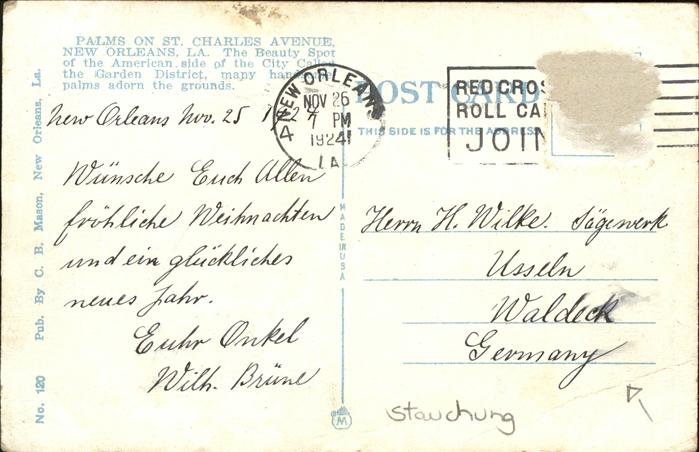 PALMS ON ST. CHARLES AVENUE,
NEW ORLEANS, LA. The Beauty Spot
of the American side of the City Called
the Garden District, many
palms adorn the grounds.
New Orleans Nov. 25 1924
Wünsche Euch Allen
fröhliche Weihnachten
und ein glückliches
neues Jahr.
Euhr Onkel
Wilh. Brüne
No. 120 Pub. By C. B. Mason, New Orleans, La.
NEW ORLEANS
NOV 26
7 PM
1924
LA.
4
POST CARD
THIS SIDE IS FOR THE ADDRESS
RED CROS
ROLL CA
JOIN
MADE IN USA
M
Herrn H. Wilke. Sägewerk
Usseln
Waldeck
Germany
Stauchung